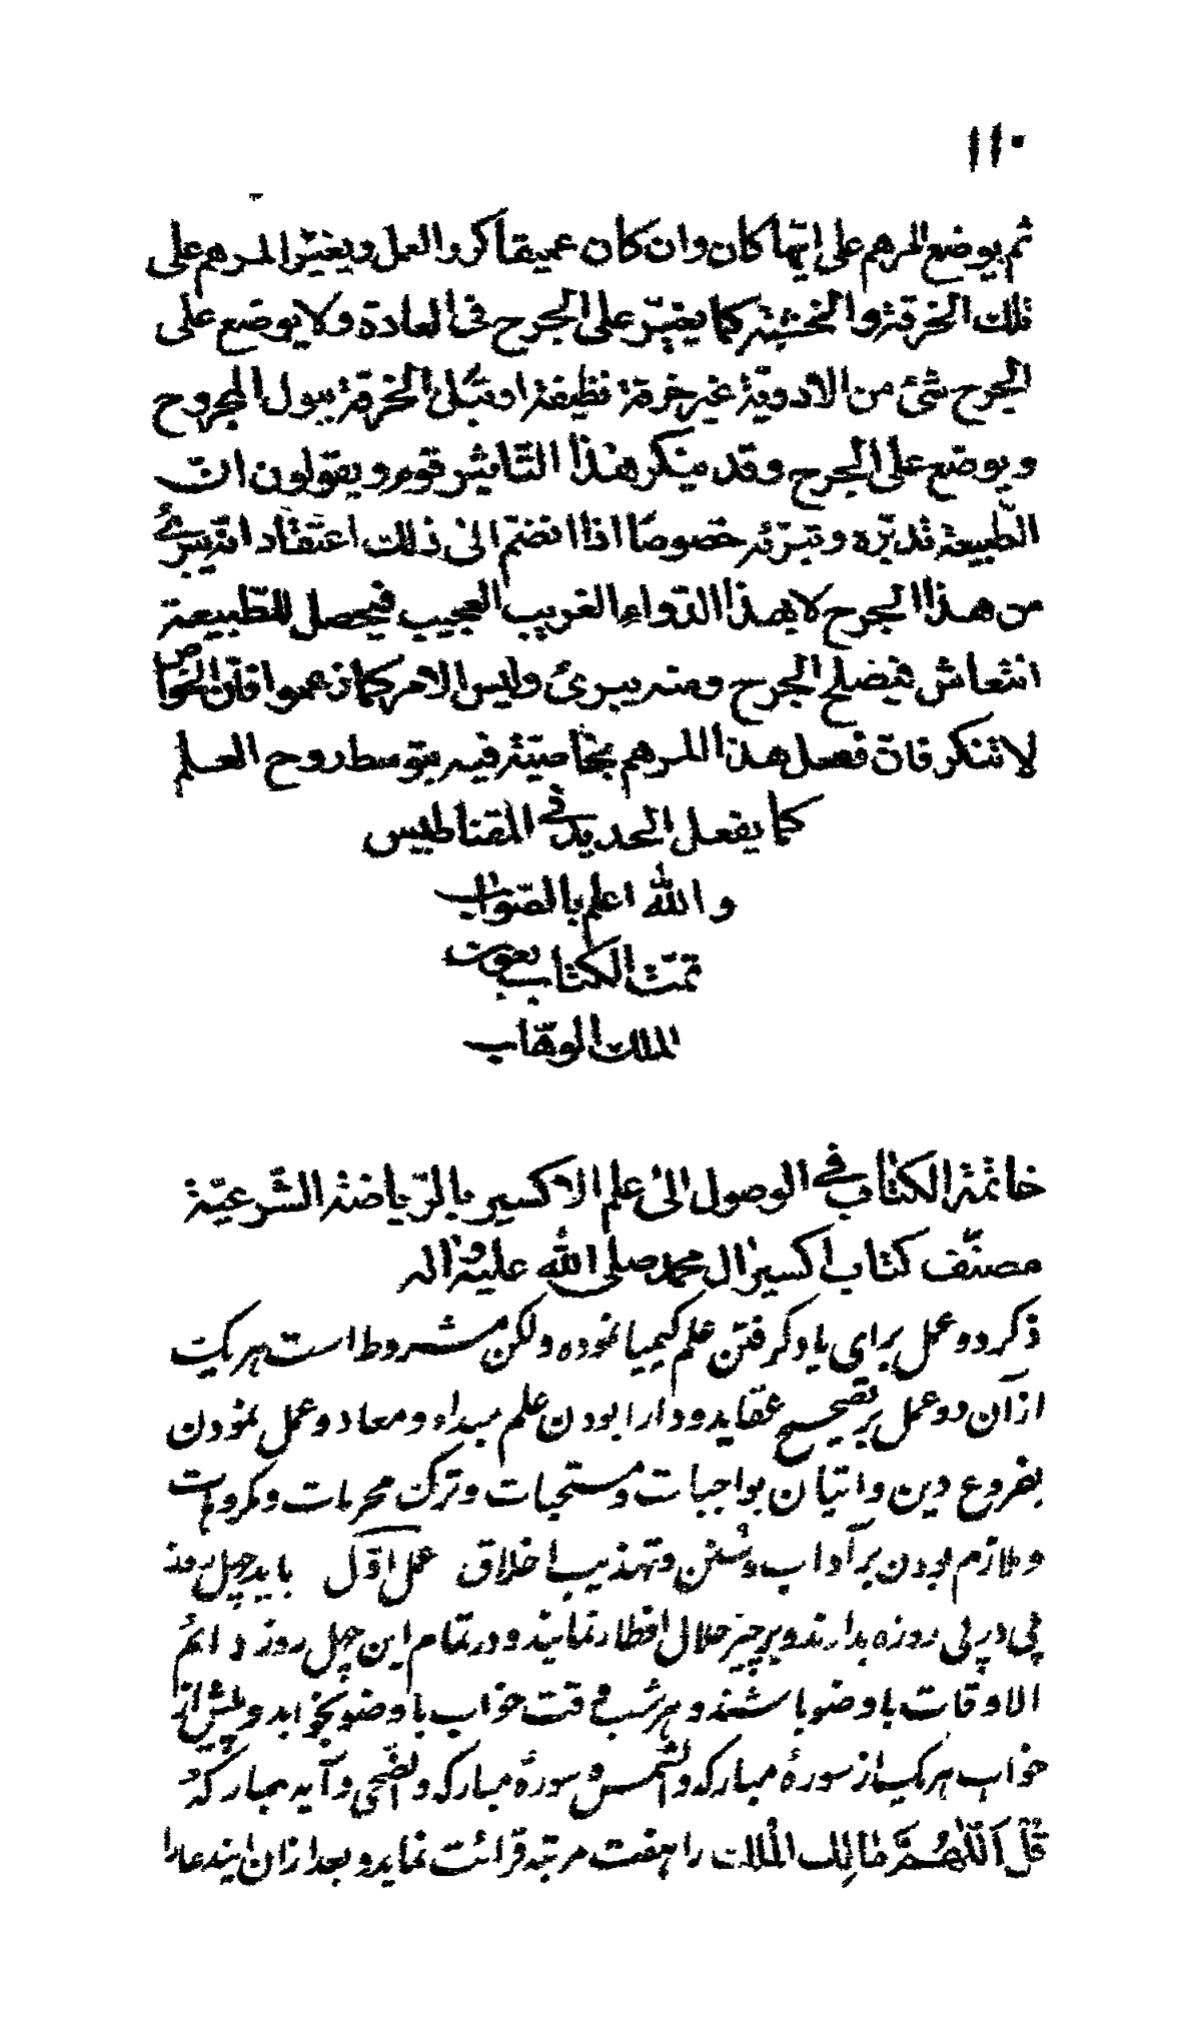 ۱۱۰
ثم يوضع المرهم على ايّها كان وان كان عميقا كرر العمل ويغيّر المرهم على
تلك الخرقة والخشبة كما يغيّر على الجرح فى العادة ولا يوضع على
الجرح شئ من الادوية غير خرقة نظيفة او تبلّ الخرقة ببول المجروح
ويوضع على الجرح وقد ينكر هذا التّاثير قوم ويقولون انّ
الطّبيعة تدبّره وتبرّئه خصوصًا اذا انضمّ الىٰ ذلك اعتقاد انّه يبرئُ
من هذا الجرح لا بهذا الدّواءِ الغريب العجيب فيحصل للطّبيعة
انتعاش فيصلح الجرح ومنه يبرئ وليس الامر كما زعموا فانّ الخواصّ
لا تنكر فانّ فعل هذا المرهم بخاصيّة فيه بتوسط روح العلم
كما يفعل الحديد فى المقناطيس
والله اعلم بالصّواب
تمّت الكتاب بعون
الملك الوهّاب
خاتمة الكتاب فى الوصول الىٰ علم الاكسير بالرّياضة الشّرعيّة
مصنّف كتاب اكسير ال محمد صلى الله عليه واله
ذکر دو عمل برای یاد گرفتن علم کیمیا نموده ولکن مشروط است هر یک
از آن دو عمل بر تصحیح عقاید و دارا بودن علم مبداء و معاد و عمل نمودن
بفروع دین و اتیان بواجبات و مستحبات و ترک محرمات و مکروهات
و ملازم بودن بر آداب و سُنن و تهذیب اخلاق عمل اوّل باید چهل روز
پی در پی روزه بدارند و بر چیز حلال افطار نمایند و در تمام این چهل روز دائم
الاوقات با وضو باشند و هر شب وقت خواب با وضو بخوابد و پیش از
خواب هر یک از سورهٔ مبارکه والشّمس و سورهٔ مبارکه والضّحی و آیه مبارکهٔ
قُلِ اَللّٰهُمَّ مٰالِكَ الْمُلْكِ را هفت مرتبه قرائت نماید و بعد از ان ایندعا را